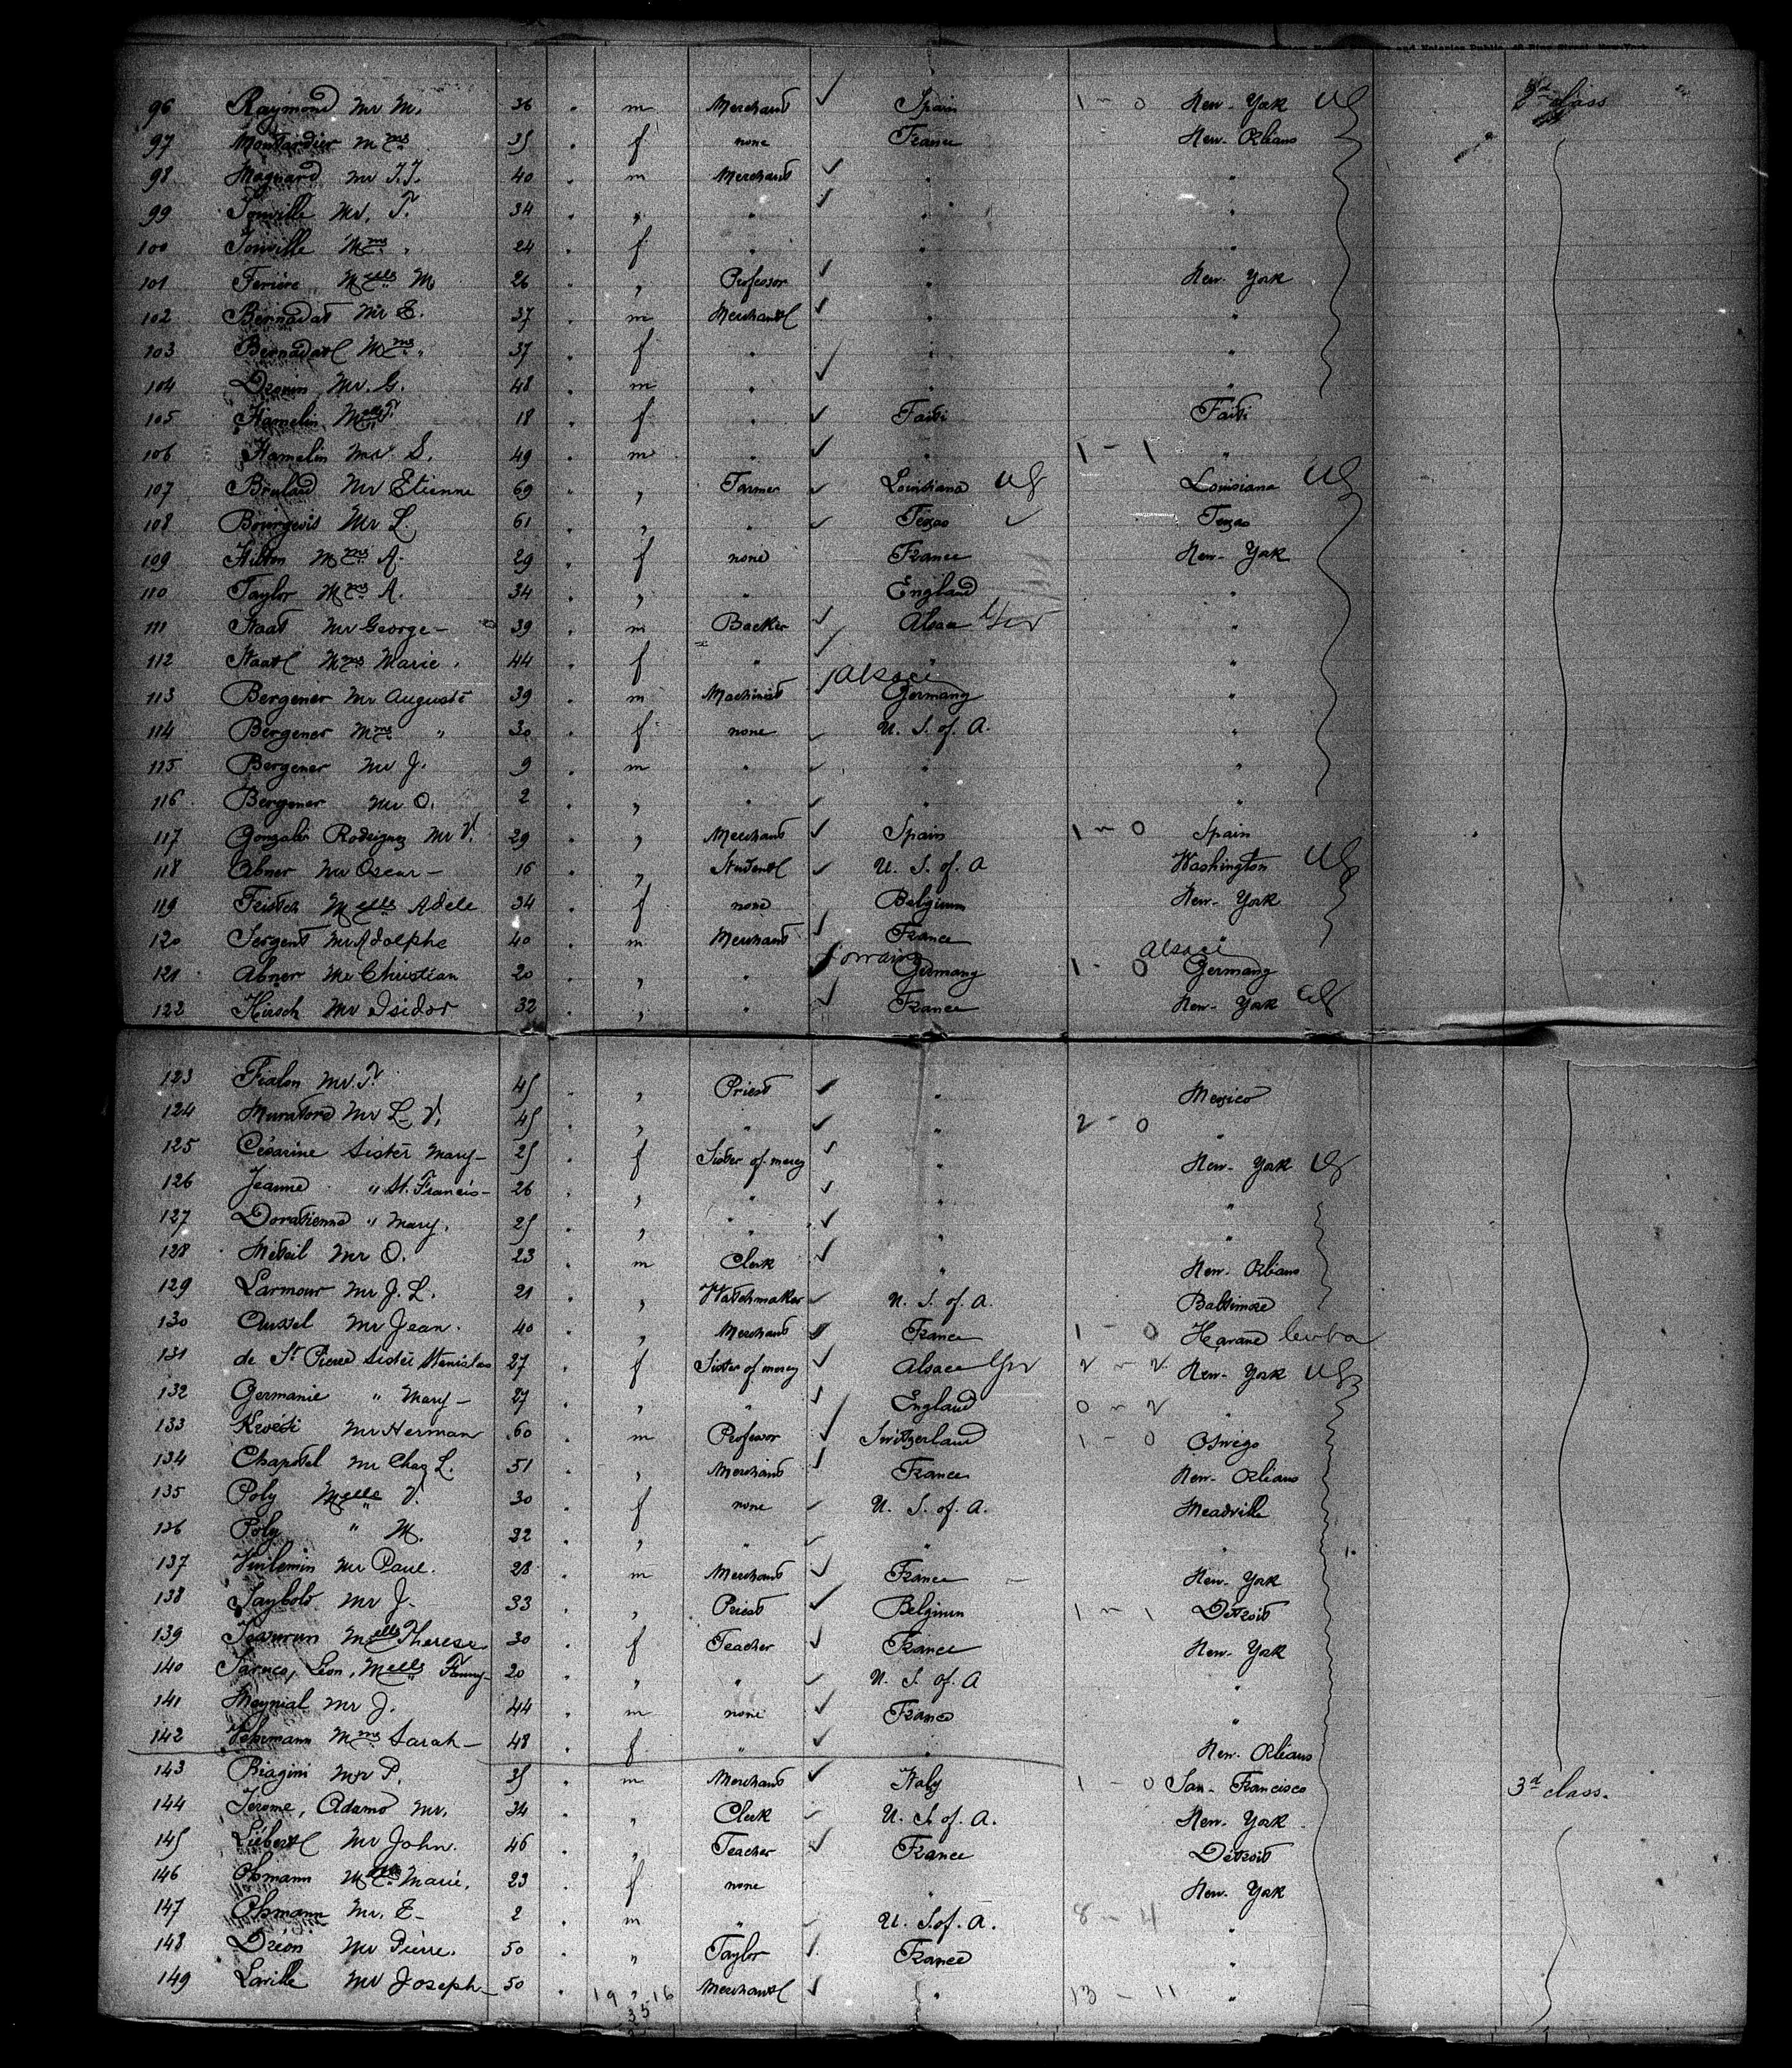 and Notaries Public, Pine Street, New-York
96 Raymond Mr M. 36 " m Merchant Spain 1-0 New-York US 2d class
97 Moutardier Mme 35 " f none France New-Orléans
98 Magnard Mr J.J. 40 " m Merchant " "
99 Jonville Mr. T. 34 " " " " "
100 Jonville Mme " 24 " f " " "
101 Ferière Melle M 26 " " Professor " New-York
102 Bernadat Mr E. 37 " m Merchant " "
103 Bernadat Mme " 37 " f " " "
104 Drouin Mr. G. 48 " m " " "
105 Hamelin Melle T. 18 " f " Faiti Faiti
106 Hamelin Mr S. 49 " m " " 1-1 "
107 Brulard Mr Etienne 69 " " Farmer Louisiana US Louisiana US
108 Bourgeois Mr L. 61 " " " Texas Texas
109 Hilton Mme A. 29 " f none France New-York
110 Taylor Mme A. 34 " " " England "
111 Staat Mr George 39 " m Backer Alsace Ger "
112 Staat Mme Marie 44 " f " " "
Alsace
113 Bergener Mr Auguste 39 " m Machinist Germany "
114 Bergener Mme " 30 " f none U. S. of. A. "
115 Bergener Mr J. 9 " m " " "
116 Bergener Mr O. 2 " " " " "
117 Gonzalez Rodriguez Mr V. 29 " " Merchant Spain 1-0 Spain
118 Abner Mr Oscar 16 " " Student U. S. of. A Washington US
119 Feister Melle Adele 34 " f none Belgium New-York
120 Sergent Mr Adolphe 40 " m Merchant France
Lorraine Alsace
121 Abner Mr Christian 20 " " " Germany 1-0 Germany
122 Hirsch Mr Isidor 32 " " " France New-York US
123 Fialon Mr. T. 45 " " Priest " Mexico
124 Muratore Mr L. V. 45 " " " " 2-0 "
125 Césarine Sister Mary 25 " f Sister of mercy " New-York US
126 Jeanne " St. Francis 26 " " " " "
127 Donatienne " Mary. 25 " " " " "
128 Métail Mr O. 23 " m Clerk " New-Orléans
129 Larmour Mr J. L. 21 " " Watchmaker U. S. of. A. Baltimore
130 Aussel Mr Jean. 40 " " Merchant France 1-0 Havane Cuba
131 de St Pierre Sister Stanislas 27 " f Sister of mercy Alsace Ger 2-2 New-York US
132 Germanie " Mary 27 " " " England 0-2 "
133 Mr Herman 60 " m Professor Switzerland 1-0 Oswégo
134 Chapotel Mr Chas L. 51 " " Merchant France New-Orléans
135 Poly Melle V. 30 " f none U. S. of. A. Meadville
136 Poly " M. 32 " " " " "
137 Vuilemin Mr Paul. 28 " m Merchant France New-York
138 Saybold Mr J. 33 " " Priest Belgium 1-1 Détroit
139 Melle Therese 30 " f Teacher France New-York
140 Leon, Melle Fanny 20 " " " U. S. of. A "
141 Meynial Mr J. 44 " m none France "
142 Mme Sarah 48 " f " " New-Orléans
143 Biagini Mr P. 35 " m Merchant Italy 1-0 San-Francisco 3d class.
144 Jérome, Adamo Mr. 34 " " Clerk U. S. of. A. New-York
145 Liébert Mr John. 46 " " Teacher France Détroit
146 Ohmann Mme Marie. 23 " f none " New-York
147 Ohmann Mr. E 2 " m " U. S. of. A. 8-4 "
148 Dréon Mr Pierre. 50 " " Taylor France "
149 Laville Mr Joseph 50 " 19 " 16 Merchant " 13-11 "
35